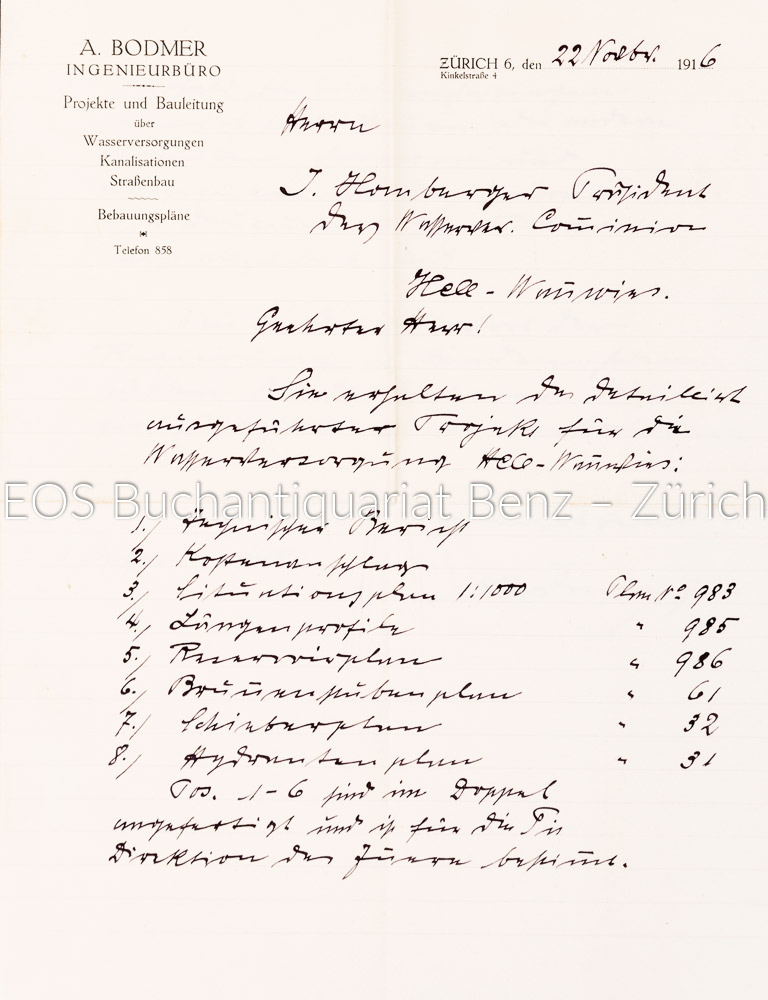 A. BODMER
INGENIEURBÜRO
Projekte und Bauleitung
über
Wasserversorgungen
Kanalisationen
Straßenbau
Bebauungspläne
Telefon 858
ZÜRICH 6, den 22 Novbr. 1916
Kinkelstraße 4
Herrn
J. Homberger Präsident
der Wasserver. Com̄ission
Hell-Wan̄wies.
Geehrter Herr!
Sie erhalten das detaillirt
ausgeführte Projekt für die
Wasserversorgung Hell-Wan̄wies:
EOS Buchantiquariat Benz – Zürich
1./ Technischer Bericht
2./ Kostenanschlag
3./ Situationsplan 1:1000 Plan No 983
4./ Längenprofile " 985
5./ Reservoirplan " 986
6./ Brun̄enstubenplan " 61
7./ Schieberplan " 32
8./ Hydrantenplan " 31
Pos. 1-6 sind im Doppel
angefertigt und ist für die
Direktion des Innern bestim̄t.